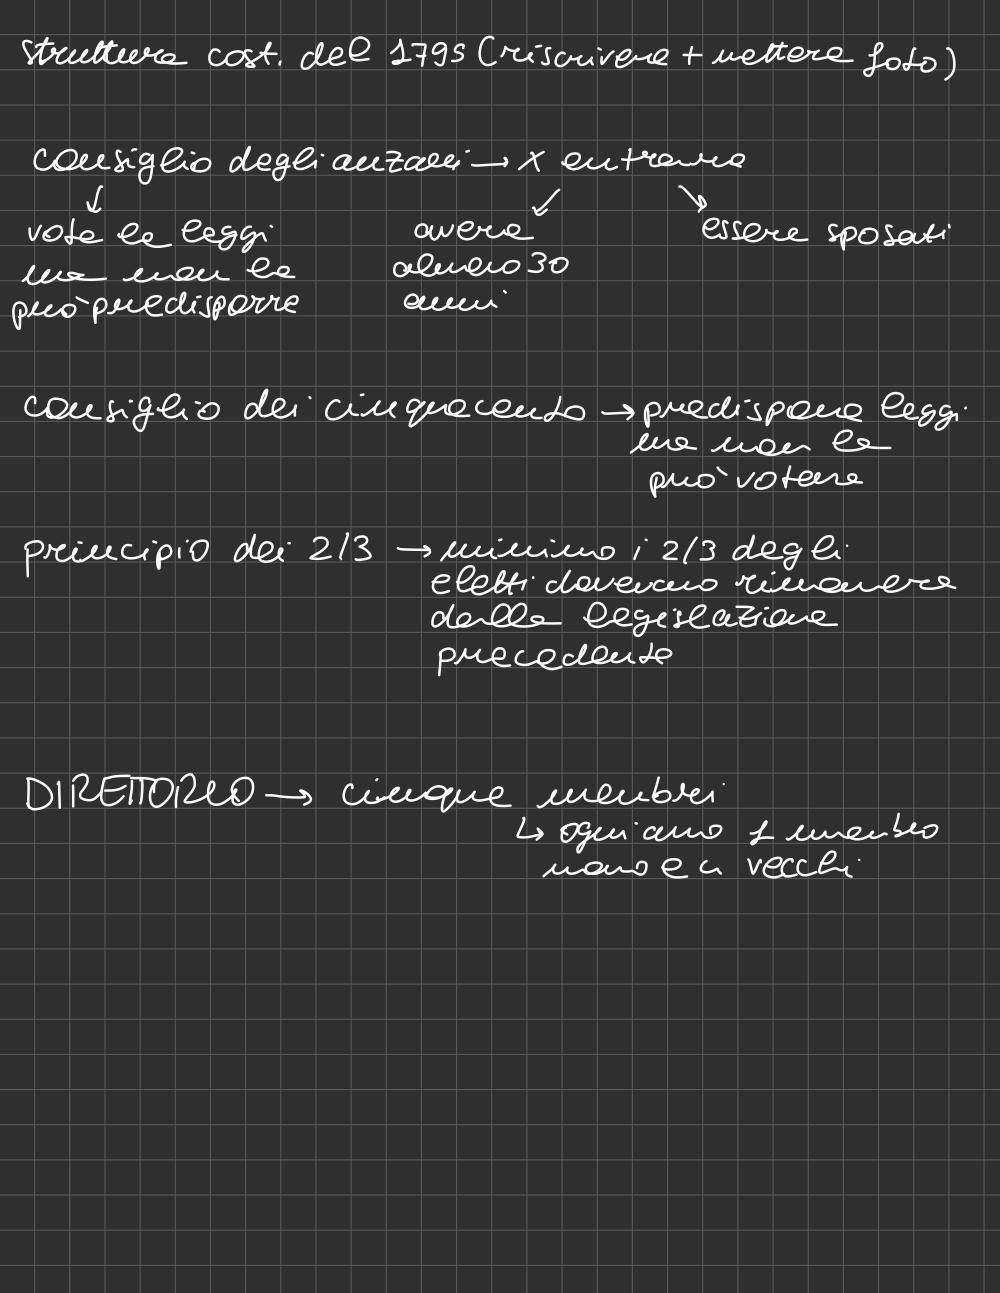 struttura cost. del 1795 (riscrivere + mettere foto)
consiglio degli anziani → x entrarvi
vota le leggi
ma non le
può predisporre
avere
almeno 30
anni
essere sposati
consiglio dei cinquecento → predispone leggi
ma non le
può votare
principio dei 2/3 → minimo i 2/3 degli
eletti dovevano rimanere
dalla legislazione
precedente
DIRETTORIO → cinque membri
↳ ogni anno 1 membro
nuovo e 4 vecchi